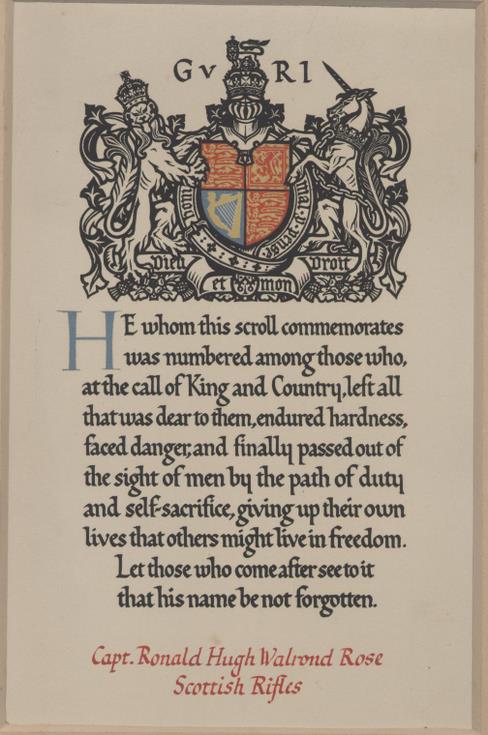 G V R I
honi
mal y pense
Dieu et mon Droit
HE whom this scroll commemorates
was numbered among those who,
at the call of King and Country, left all
that was dear to them, endured hardness,
faced danger, and finally passed out of
the sight of men by the path of duty
and self-sacrifice, giving up their own
lives that others might live in freedom.
Let those who come after see to it
that his name be not forgotten.
Capt. Ronald Hugh Walrond Rose
Scottish Rifles